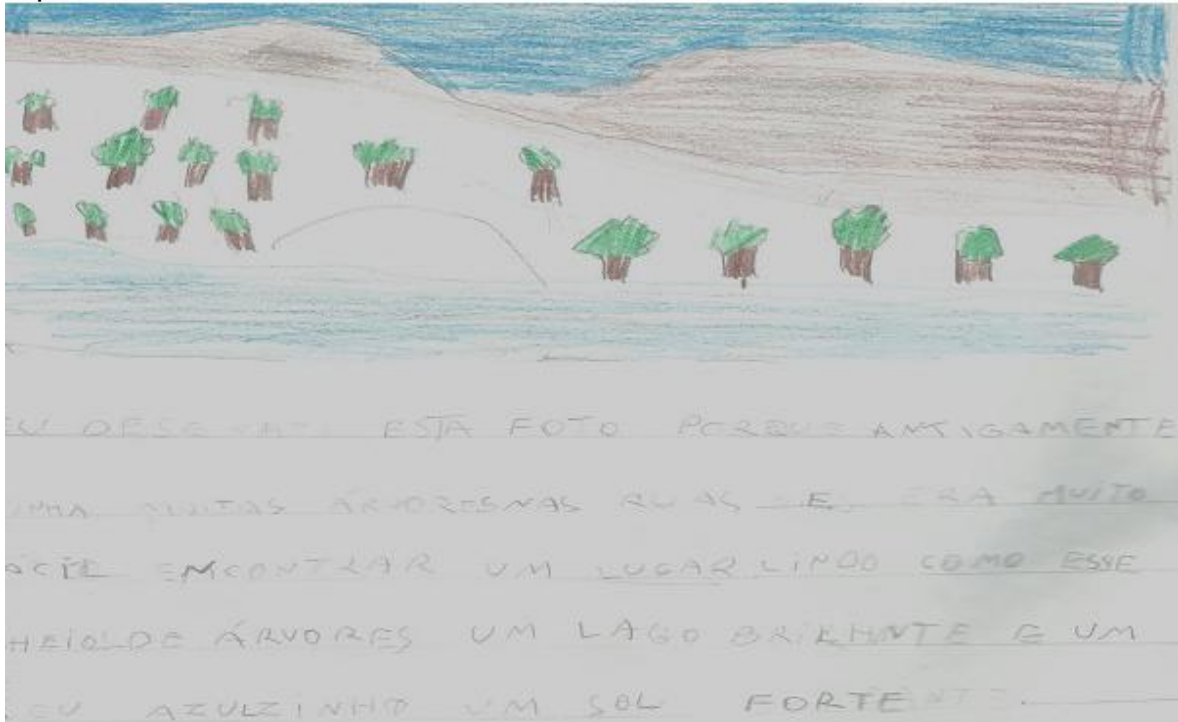 EU ESTA FOTO PORQUE ANTIGAMENTE
MUITAS ÁRVORESNAS RUAS E ERA MUITO
ENCONTRAR UM LUGAR LINDO COMO ESSE
DE ÁRVORES UM LAGO BRILHANTE E UM
AZULZINHO UM SOL FORTE